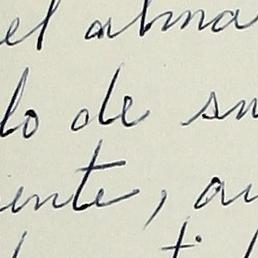 el alma
lo de su
ente, au